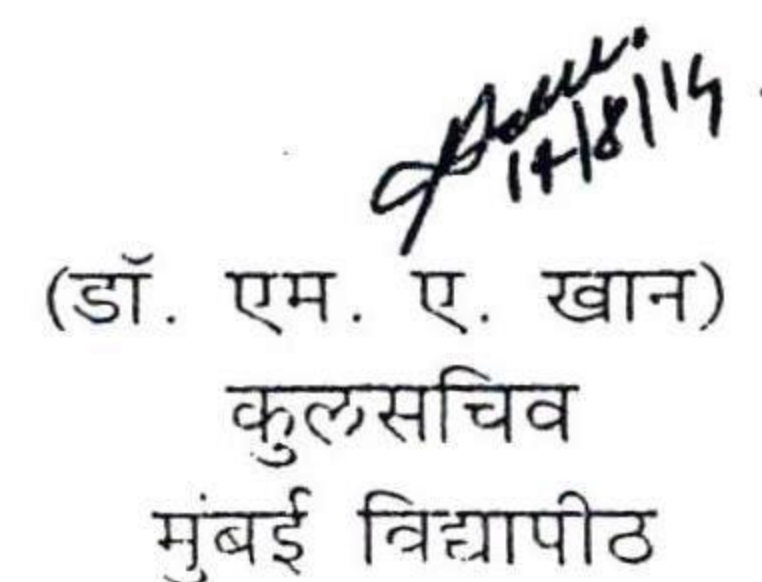 14/8/14
(डॉ. एम. ए. खान)
कुलसचिव
मुंबई विद्यापीठ